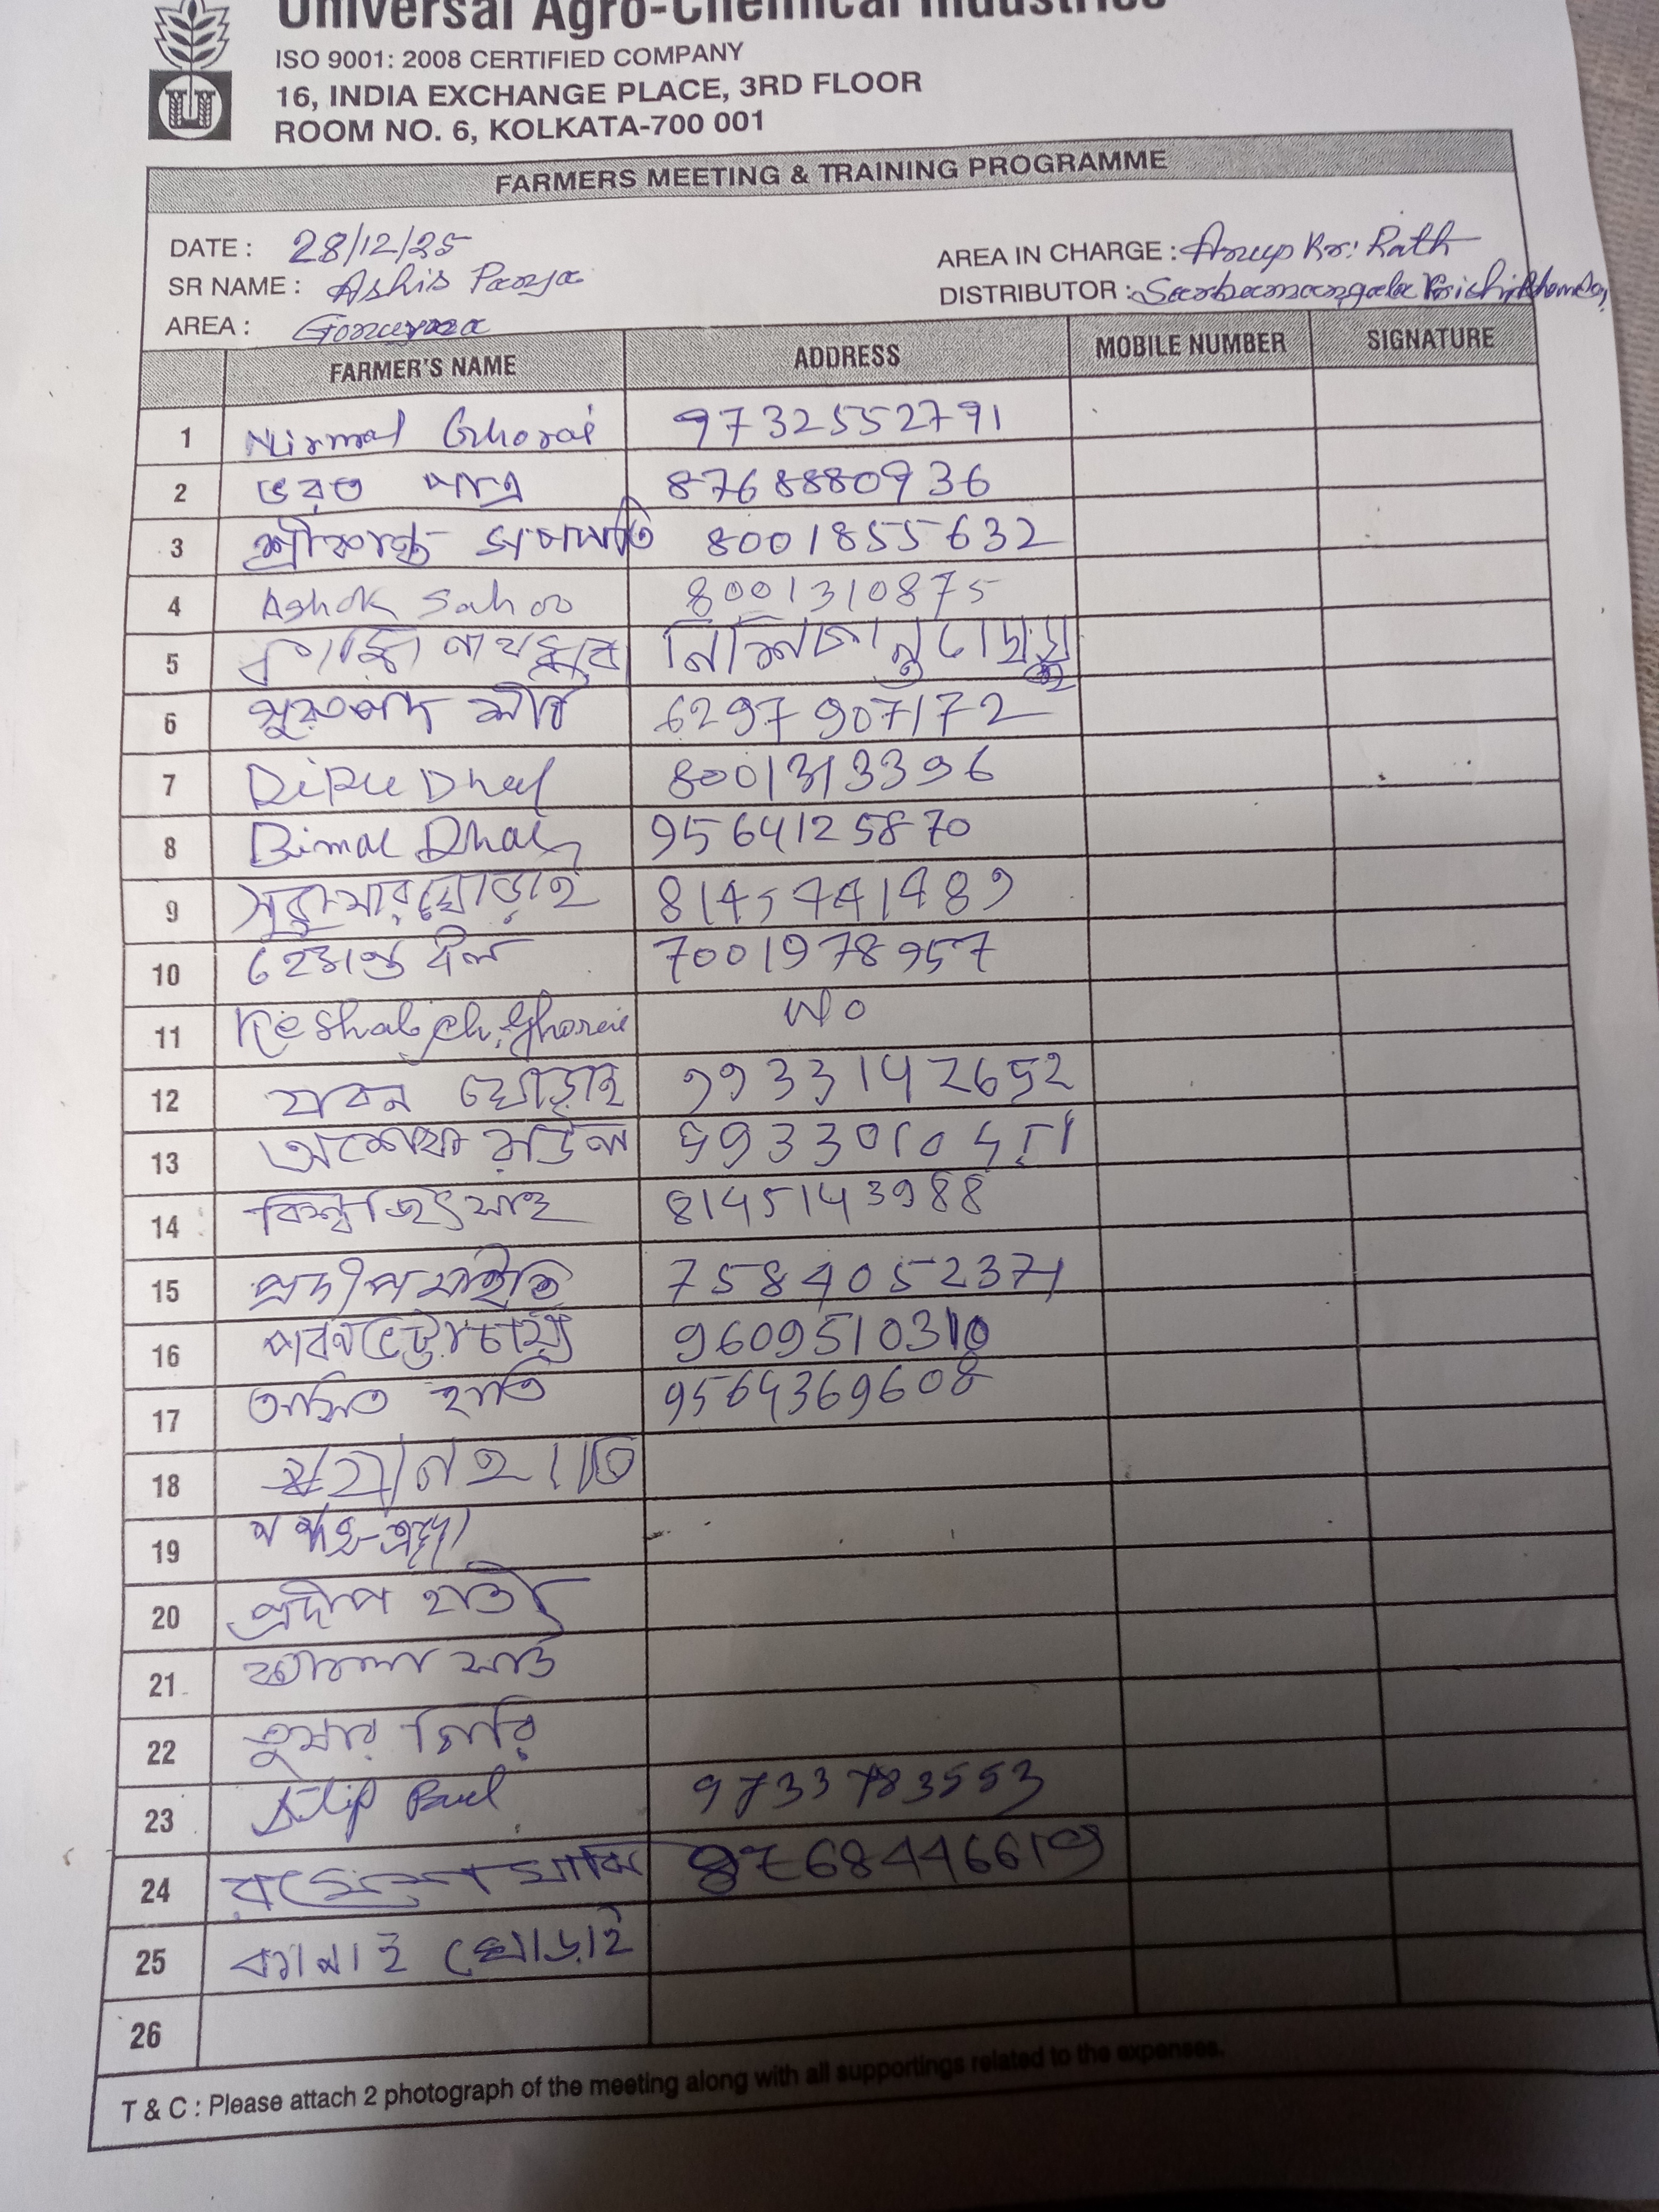 Universal Agro-Chemical Industries
ISO 9001: 2008 CERTIFIED COMPANY
16, INDIA EXCHANGE PLACE, 3RD FLOOR
ROOM NO. 6, KOLKATA-700 001
FARMERS MEETING & TRAINING PROGRAMME
DATE : 28/12/25 AREA IN CHARGE : Anup Kr. Rath
SR NAME : Ashis Panja DISTRIBUTOR : Sarbamangala
AREA :
FARMER'S NAME ADDRESS MOBILE NUMBER SIGNATURE
1 Nirmal Ghorai 9732552791
2 ভরত পাত্র 8768880936
3 শ্রীকান্ত 8001855632
4 Ashok Sahoo 8001310875
5
6 6297907172
7 Dipu Dhal 8001313396
8 Bimal Dhal 9564125870
9 সুকুমার ঘোড়াই 8145441489
10 হেমন্ত 7001978957
11 Keshab ch. Ghorai No
12 ঘোড়াই 9933142652
13 অশোক মন্ডল
14 বিশ্বজিৎ মাই 8145143988
15 প্রদীপ মাইতি
16 9609510310
17 অমিত হাতি 9564369608
18
19
20 প্রদীপ হাতী
21
22 তুষার গিরি
23 Dilip Paul 9733783553
24 8768446619
25 কানাই ঘোড়াই
26
T & C : Please attach 2 photograph of the meeting along with all supportings related to the expenses.